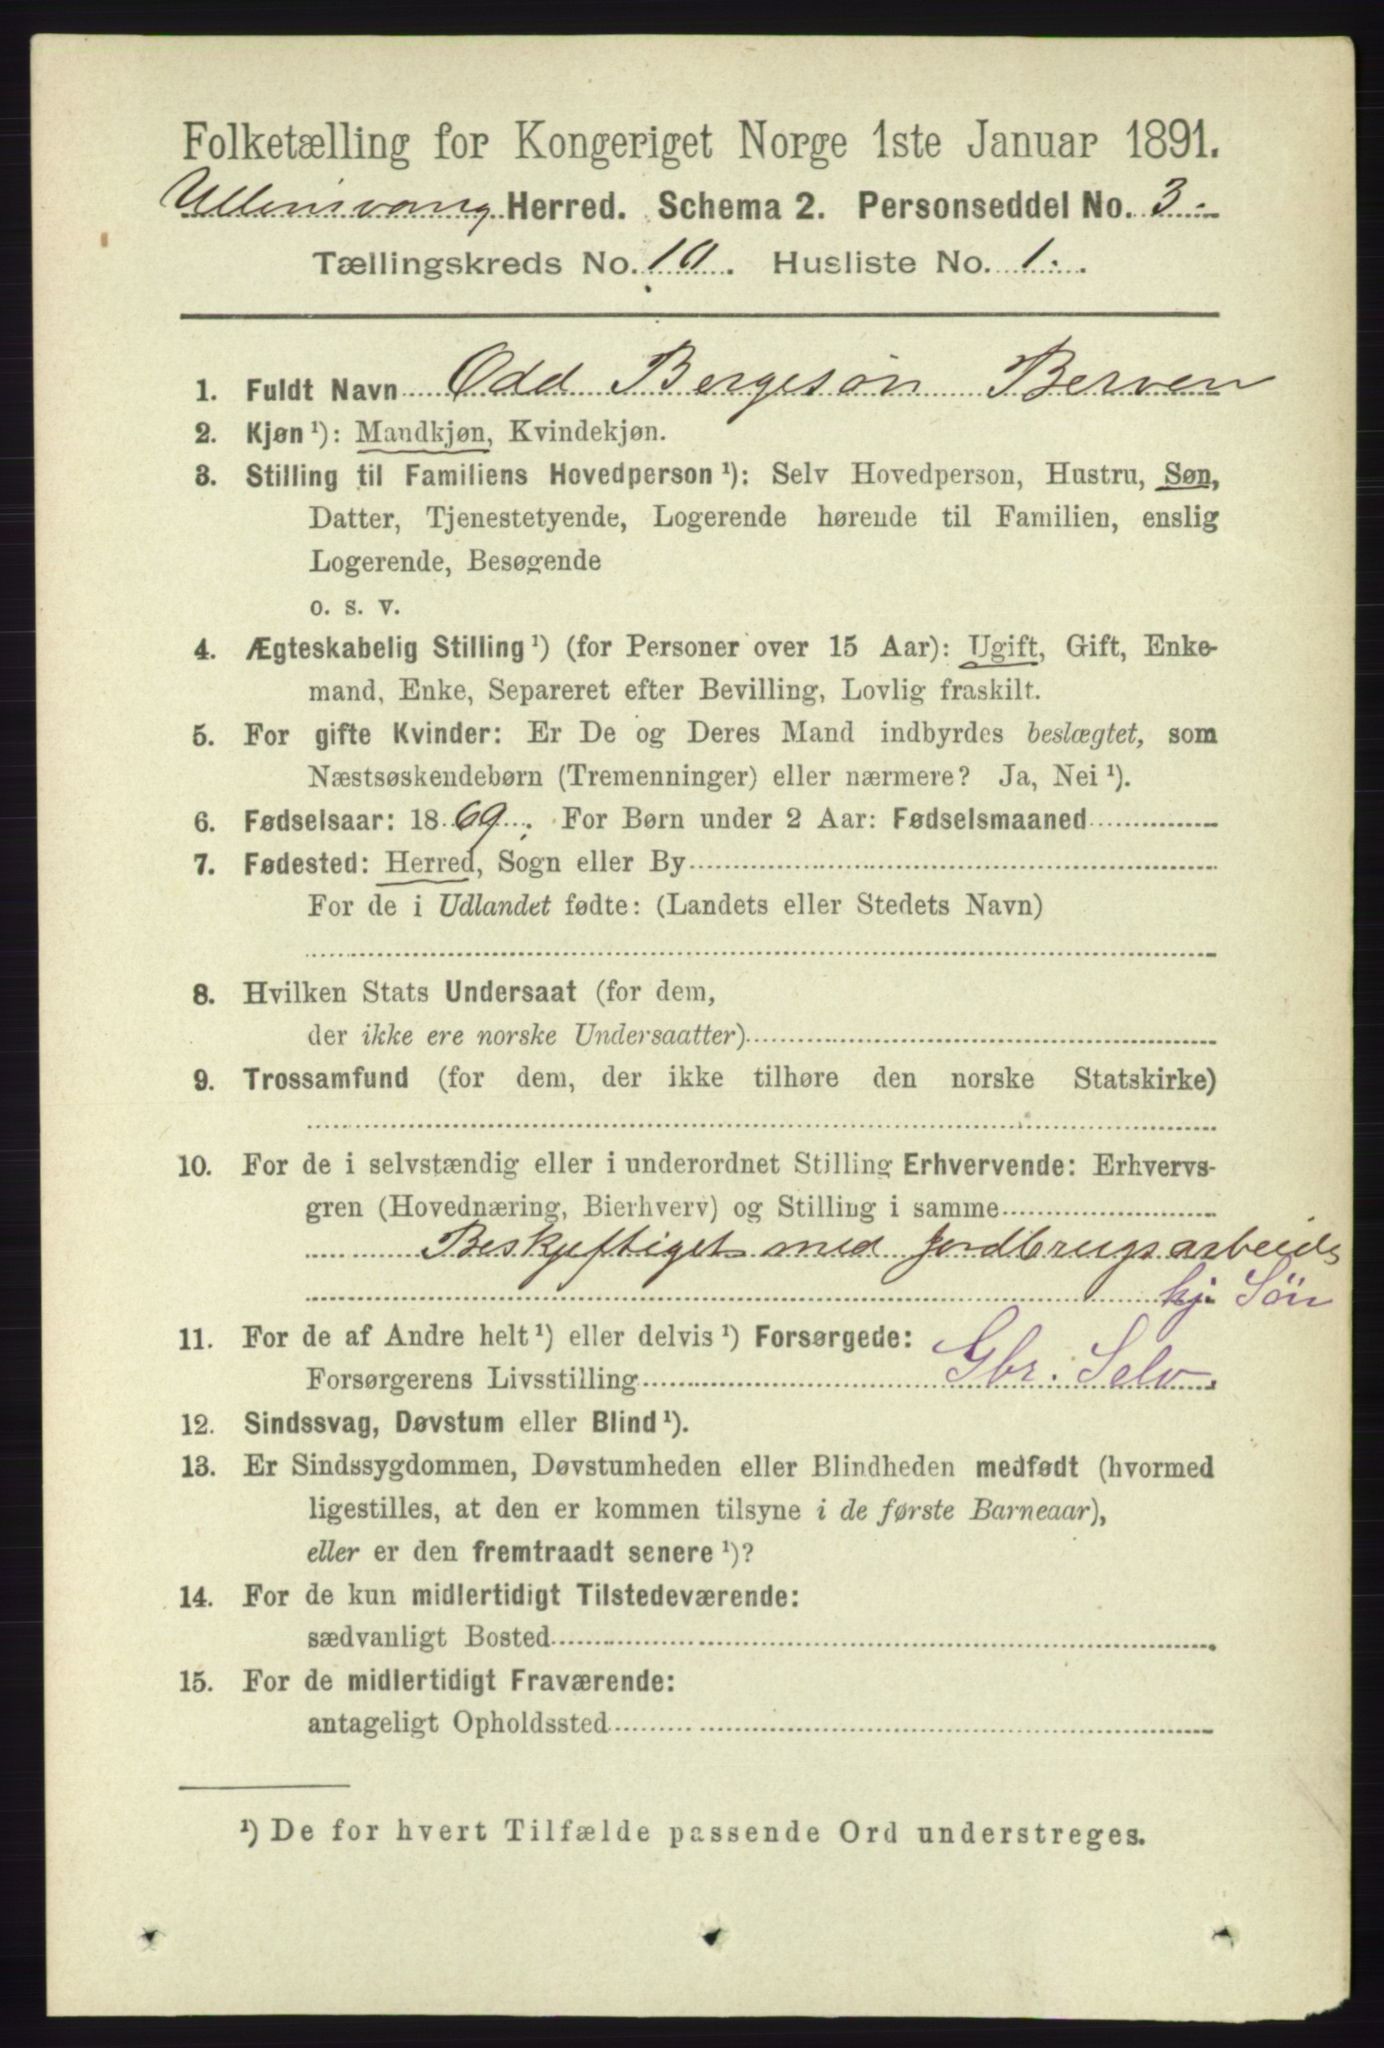 Folketælling for Kongeriget Norge 1ste Januar 1891.
Ullensvang Herred. Schema 2. Personseddel No. 3.
Tællingskreds No. 10. Husliste No. 1.
1. Fuldt Navn Odd Bergesøn Berven
2. Kjøn ¹): Mandkjøn, Kvindekjøn.
3. Stilling til Familiens Hovedperson ¹): Selv Hovedperson, Hustru, Søn,
Datter, Tjenestetyende, Logerende hørende til Familien, enslig
Logerende, Besøgende
o. s. v.
4. Ægteskabelig Stilling ¹) (for Personer over 15 Aar): Ugift, Gift, Enke-
mand, Enke, Separeret efter Bevilling, Lovlig fraskilt.
5. For gifte Kvinder: Er De og Deres Mand indbyrdes beslægtet, som
Næstsøskendebørn (Tremenninger) eller nærmere? Ja, Nei ¹).
6. Fødselsaar: 1869. For Børn under 2 Aar: Fødselsmaaned
7. Fødested: Herred, Sogn eller By
For de i Udlandet fødte: (Landets eller Stedets Navn)
8. Hvilken Stats Undersaat (for dem,
der ikke ere norske Undersaatter)
9. Trossamfund (for dem, der ikke tilhøre den norske Statskirke)
10. For de i selvstændig eller i underordnet Stilling Erhvervende: Erhvervs-
gren (Hovednæring, Bierhverv) og Stilling i samme
Beskjæftiget med Jordbrugsarbeide
hj. Søn
11. For de af Andre helt ¹) eller delvis ¹) Forsørgede:
Forsørgerens Livsstilling Gbr. Selv.
12. Sindssvag, Døvstum eller Blind ¹).
13. Er Sindssygdommen, Døvstumheden eller Blindheden medfødt (hvormed
ligestilles, at den er kommen tilsyne i de første Barneaar),
eller er den fremtraadt senere ¹)?
14. For de kun midlertidigt Tilstedeværende:
sædvanligt Bosted
15. For de midlertidigt Fraværende:
antageligt Opholdssted
¹) De for hvert Tilfælde passende Ord understreges.